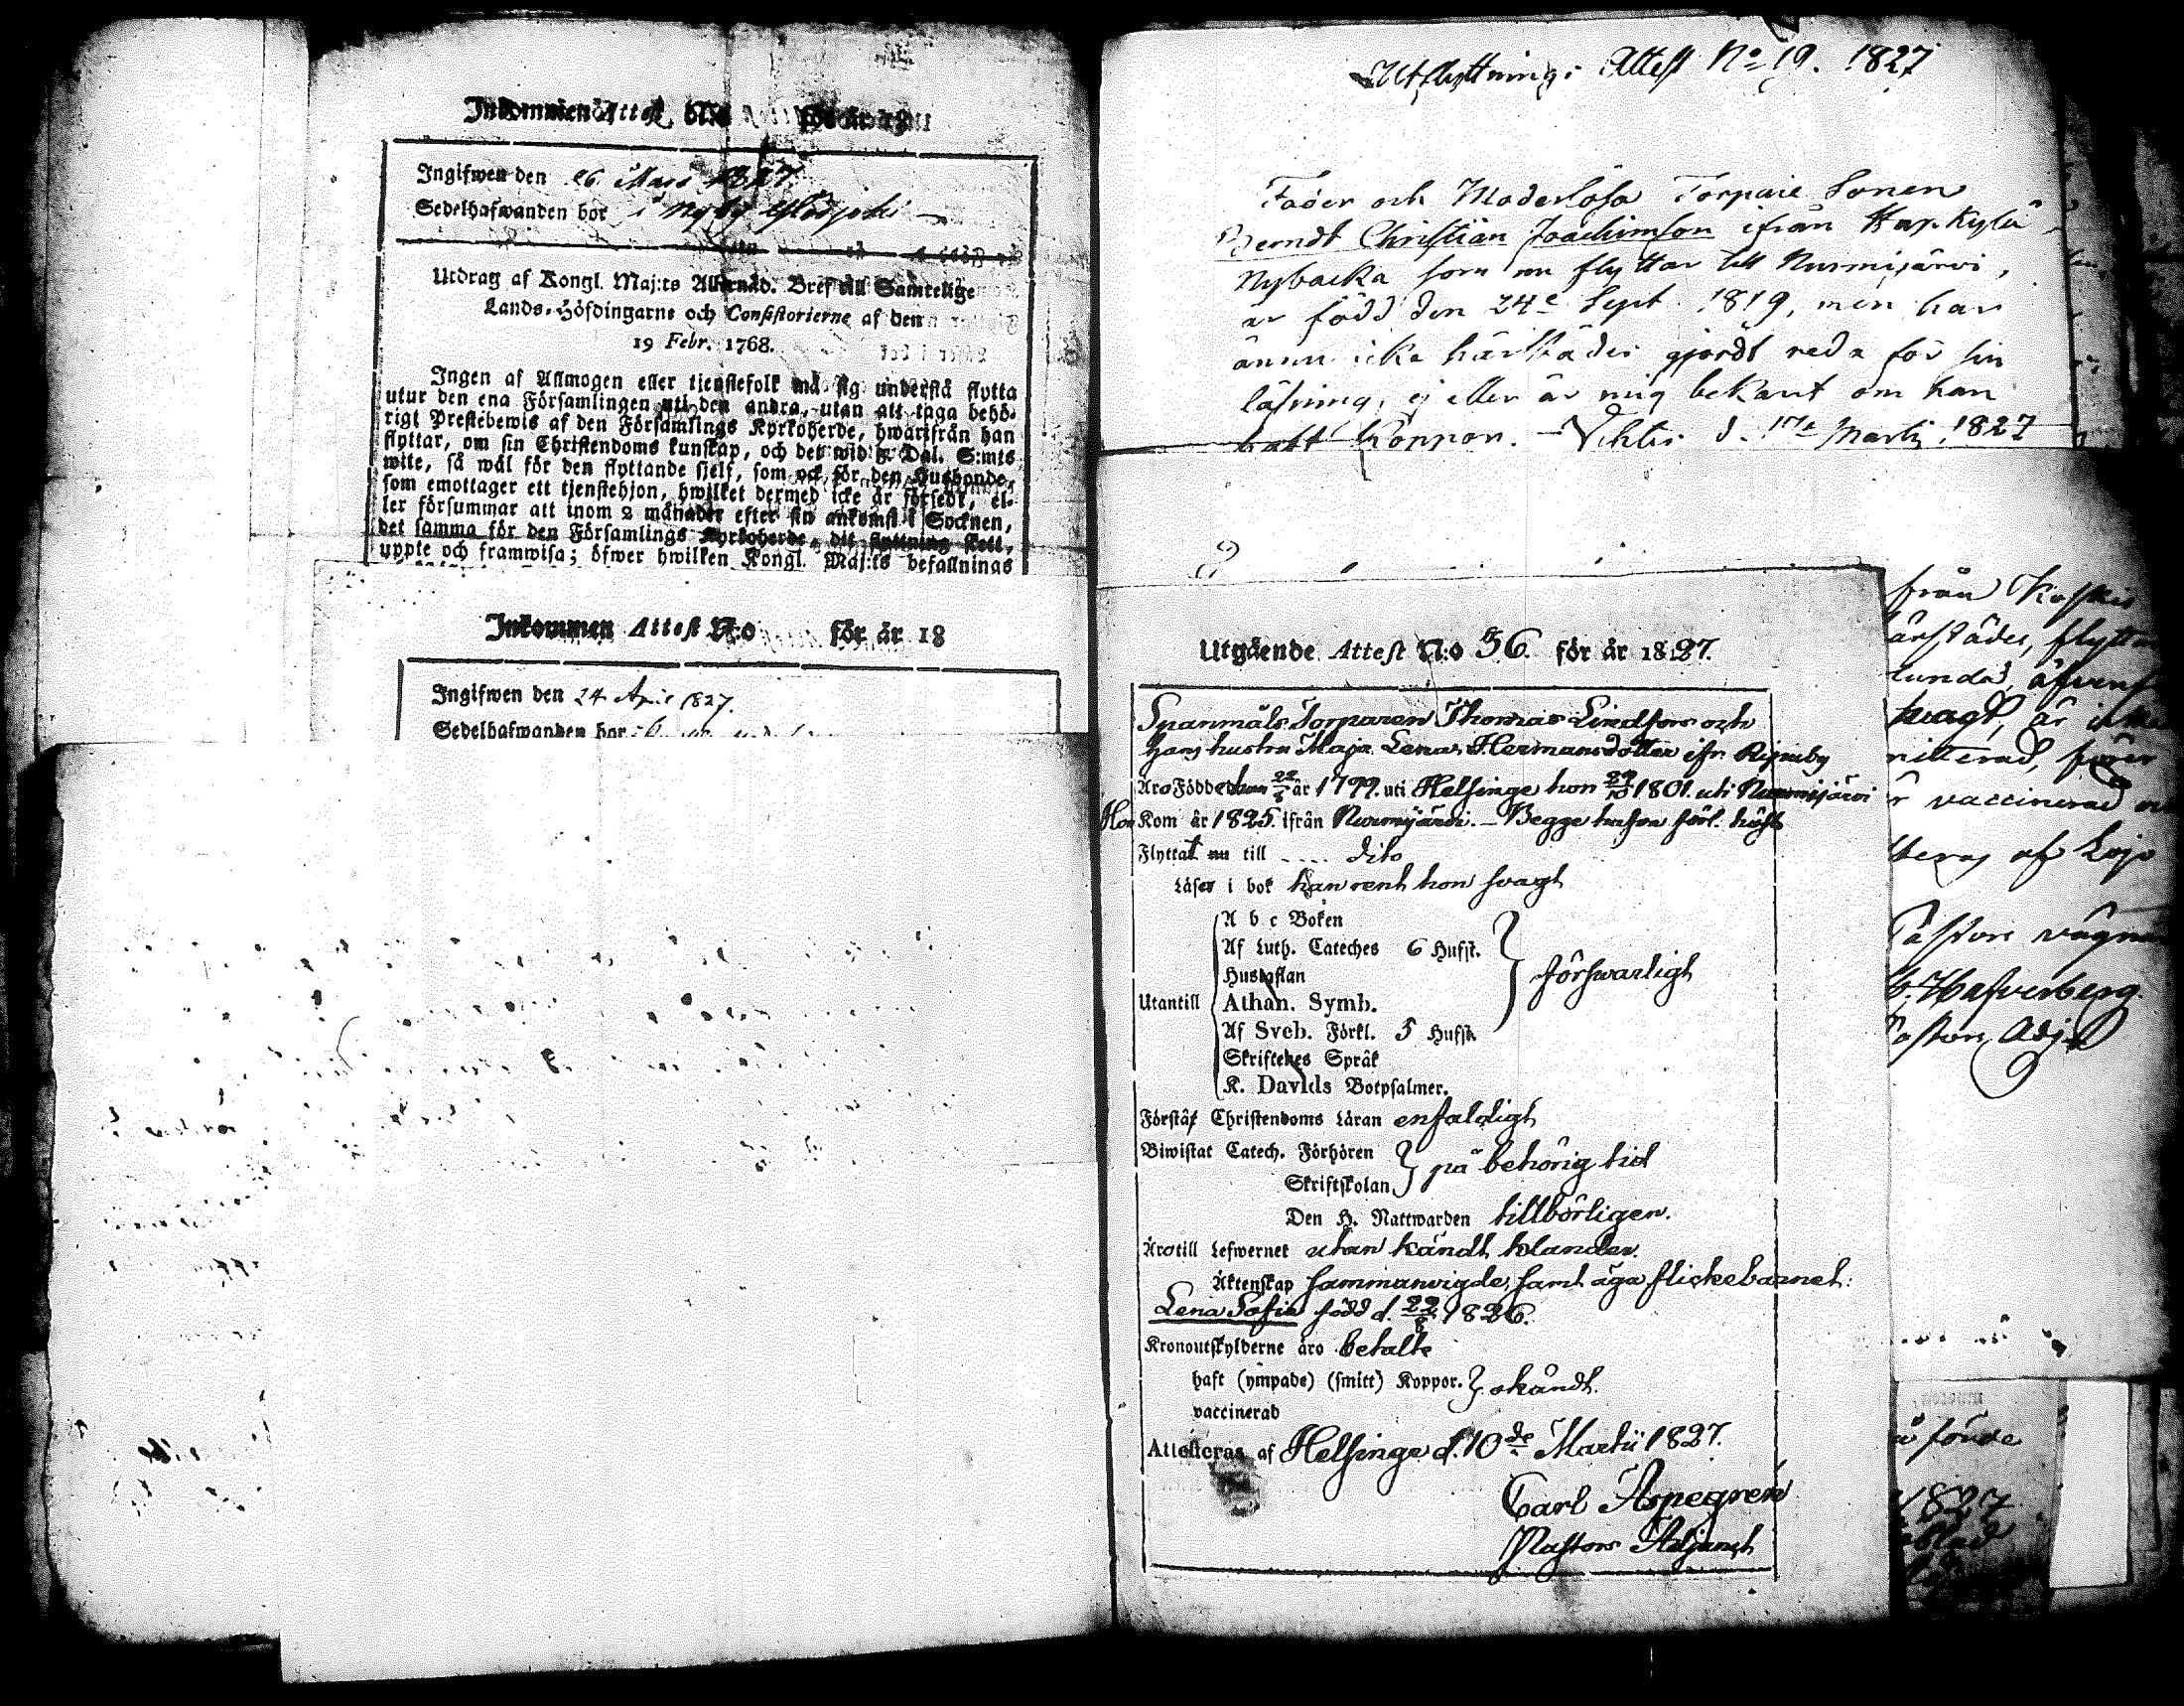 Inkommen Attest N:o för är 18
Ingifwen den 26 Mars 1827.
Sedelhafwanden bor i Nyby
Utdrag af Kongl. Maj:ts Allernåd. Bref till Samtelige
Lands-Höfdingarne och Consistorierne af den
19 Febr. 1768.
Ingen af Allmogen eller tjenstefolk må sig understå flytta
utur den ena Församlingen uti den andra, utan att taga behö-
rigt Prestebewis af den Församlings Kyrkoherde, hwarifrån han
flyttar, om sin Christendoms kunskap, och det wid Dal. S:mts
wite, så wäl för den flyttande sjelf, som ock för den Husbonde,
som emottager ett tjenstehjon, hwilket dermed icke är försedt, el-
ler försummar att inom 2 månader efter sin ankomst i Socknen,
det samma för den Församlings Kyrkoherde, dit flyttning skett,
uppte och framwisa; öfwer hwilken Kongl. Maj:ts befallnings
Inkommen Attest N:o för är 18
Ingifwen den 24 April 1827.
Sedelhafwanden bor i
Utflyttnings Attest No 19. 1827
Fader och Moderlösa Torpare Sonen
Berndt Christian Joachimson ifrån Hap.Kylä
Nybacka som nu flyttar till Nurmijärvi,
är född den 24e Sept. 1819, men har
ännu icke härstädes gjordt reda för sin
läsning, ej eller är mig bekant om han
haft Koppor. – Vichtis d. 17e Martii 1827
Utgående Attest N:o 56. för år 1827.
Spanmåls Torparen Thomas Lindfors och
hans hustru Maja Lena Hermansdotter ifr. Ripuby
Äro Född han 22/8 år 1799. uti Helsinge hon 29/10 1801. uti Nurmijärvi
Hon Kom år 1825. ifrån Nurmijärvi. – Begge förl. höst
Flyttat nu till .... dito
Läser i bok han rent hon svagt
A b c Boken
Af Luth. Cateches 6 Hufst.
Hustaflan
försvarligt
Utantill Athan. Symb.
Af Sveb. Förkl. 5 Hufst.
Skriftenes Språk
K. Davids Botpsalmer.
Förstår Christendoms Läran enfaldigt
Biwistat Catech. Förhören
Skriftskolan på behörig tid
Den H. Nattwarden tillbörligen.
Äro till Lefwernet utan kändt klander.
Äktenskap sammanvigde, samt äga flickebarnet:
Lena Sofia född d. 22/8 1826.
Kronoutskylderne äro betalte
haft (ympade) (smitt) Koppor. okändt.
vaccinerad
Attesteras af Helsinge d. 10de Martii 1827.
Carl Aspegren
Pastors Adjunct
från
ärstädes, flyttar
svagt, är icke
r vaccinerad
teras af Lojo
Pastors vägnar
Hafverberg.
Pastors Adj.
1827